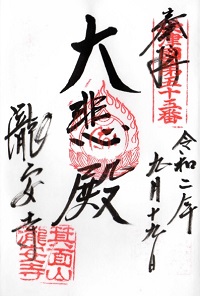 奉拝
令和二年
九月十九日
大悲殿
瀧安寺
箕面山
瀧安寺